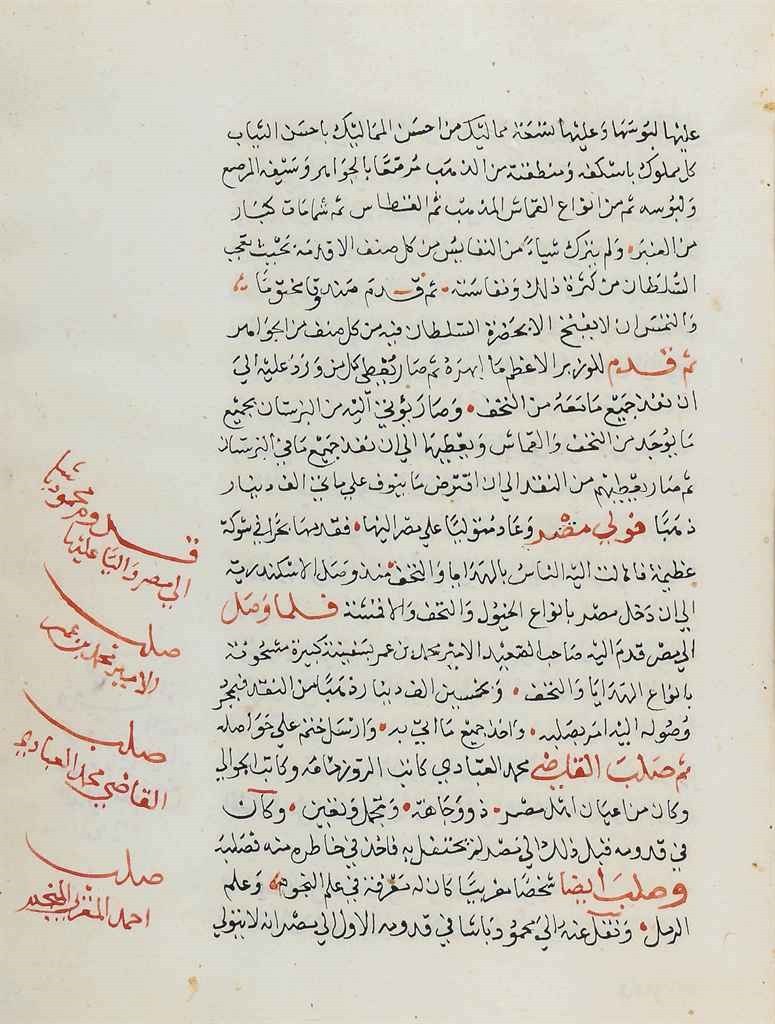 عليها لبوسها وعليها تسعة مماليك من احسن المماليك باحسن الثياب
كل مملوك باسكفه ومنطقته من الذهب مرصعا بالجواهر وسيفه المرصع
ولبوسه ثم من انواع القماش المذهب ثم القسطاس ثم شمامات كبار
من العنبر ولم يترك شياء من النفايس من كل صنف الا قدمه بحيث تعجب
السلطان من كثرة ذلك ونفاسته ثم قدم صندوقا مختوما
والتمس ان لا يفتح الا بحضرة السلطان فيه من كل صنف من الجواهر
ثم قدم للوزير الاعظم ما ابهره ثم صار يعطي كل من ورد عليه الي
ان نفذ جميع ما معه من التحف وصار يؤتي اليه من البزستان بجميع
ما يوجد من التحف والقماش ويعطيها الي ان نفذ جميع ما في البزستان
ثم صار يعطيهم من النقد الي ان اقترض ما ينوف علي مايتي الف دينار
ذهبا فولي مصر وعاد متوليا علي مصر اليها فقدمها بحرا في شوكة
عظيمة فانهالت اليه الناس بالهدايا والتحف منذ وصل الاسكندرية
الي ان دخل مصر بانواع الخيول والتحف والاقمشة فلما وصل
الي مصر قدم اليه صاحب الصعيد الامير محمد بن عمر بسفينة كبيرة مشحونة
بانواع الهدايا والتحف وبخمسين الف دينار ذهبا من النقد فبمجرد
وصوله اليه امر بصلبه واخذ جميع ما اتي به وارسل ختم علي حواصله
ثم صلب القاضي محمد العبادي كاتب الروزنامه وكاتب الجوالي
وكان من اعيان اهل مصر ذو وجاهة وتجمل وتعين وكان
في قدومه قبل ذلك الي مصر لم يحتفل به فاخذ في خاطره منه فصلبه
وصلب أيضا شخصا مغربيا كان له معرفة في علم النجوم وعلم
الرمل ونقل عنه الي محمود باشا في قدومه الاول الي مصر انه لا يتولي
قدوم محمود باشا
الي مصر واليا عليها
صلب
الامير محمد بن عمر
صلب
القاضي محمد العبادي
صلب
احمد المغربي المنجم